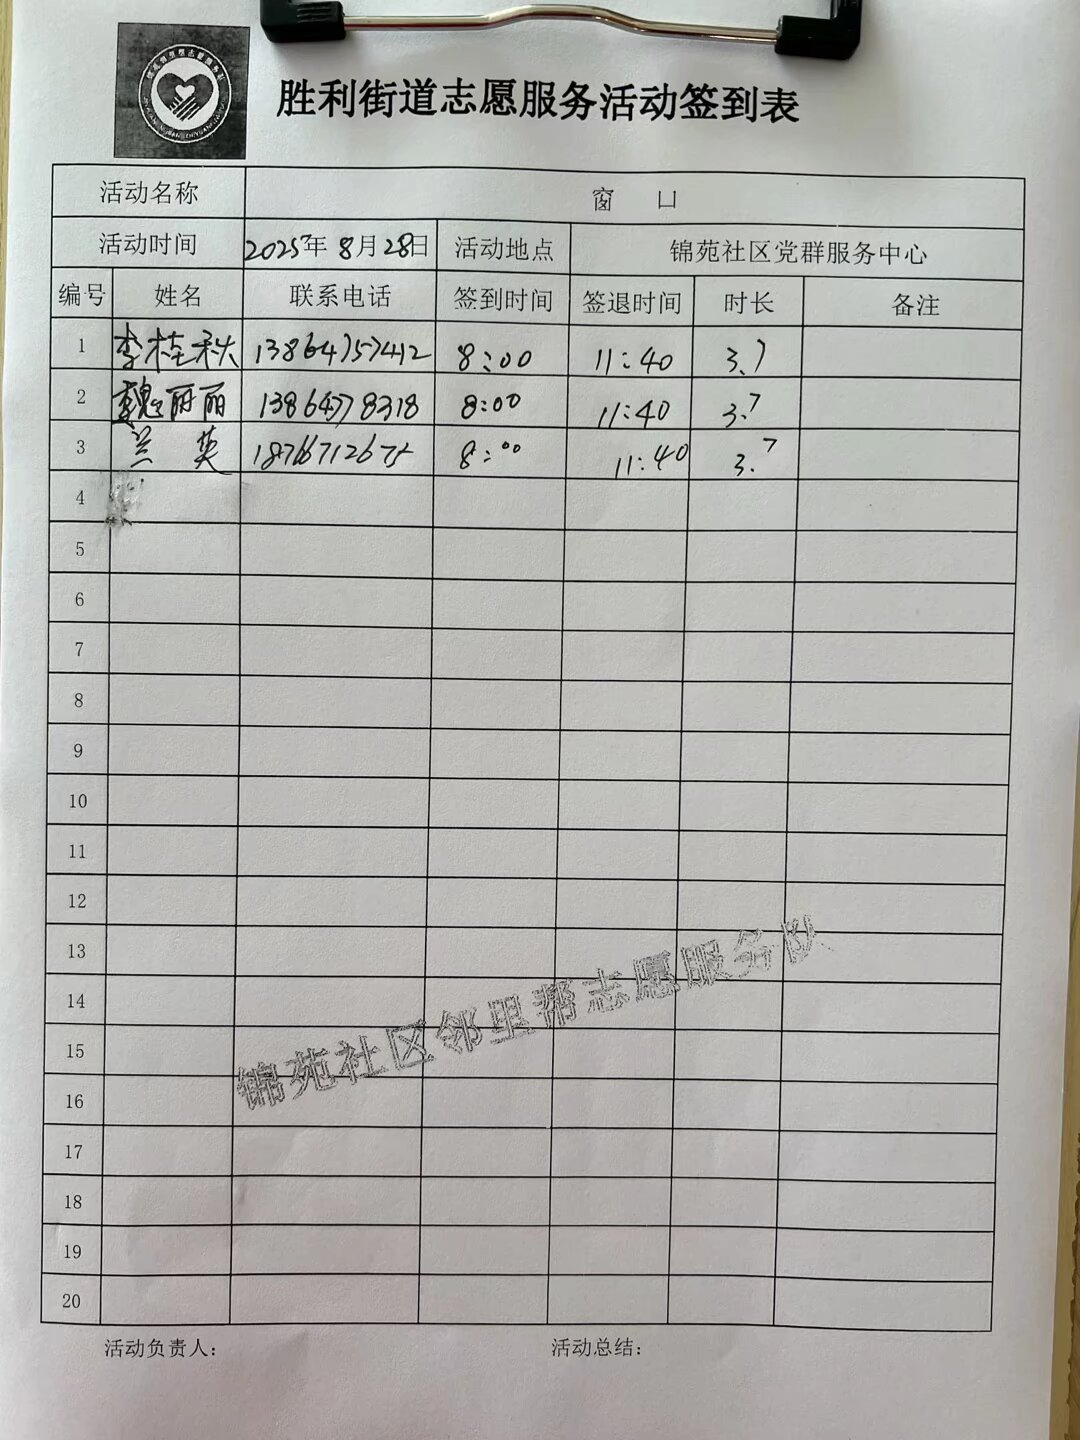 胜利街道志愿服务活动签到表
活动名称 窗 口
活动时间 2025年 8月28日 活动地点 锦苑社区党群服务中心
编号 姓名 联系电话 签到时间 签退时间 时长 备注
1 李桂秋 13864757412 8:00 11:40 3.7
2 魏丽丽 13864778318 8:00 11:40 3.7
3 兰英 18766712675 8:00 11:40 3.7
4
5
6
7
8
9
10
11
12
13
14
15
16
17
18
19
20
锦苑社区邻里帮志愿服务队
活动负责人: 活动总结: